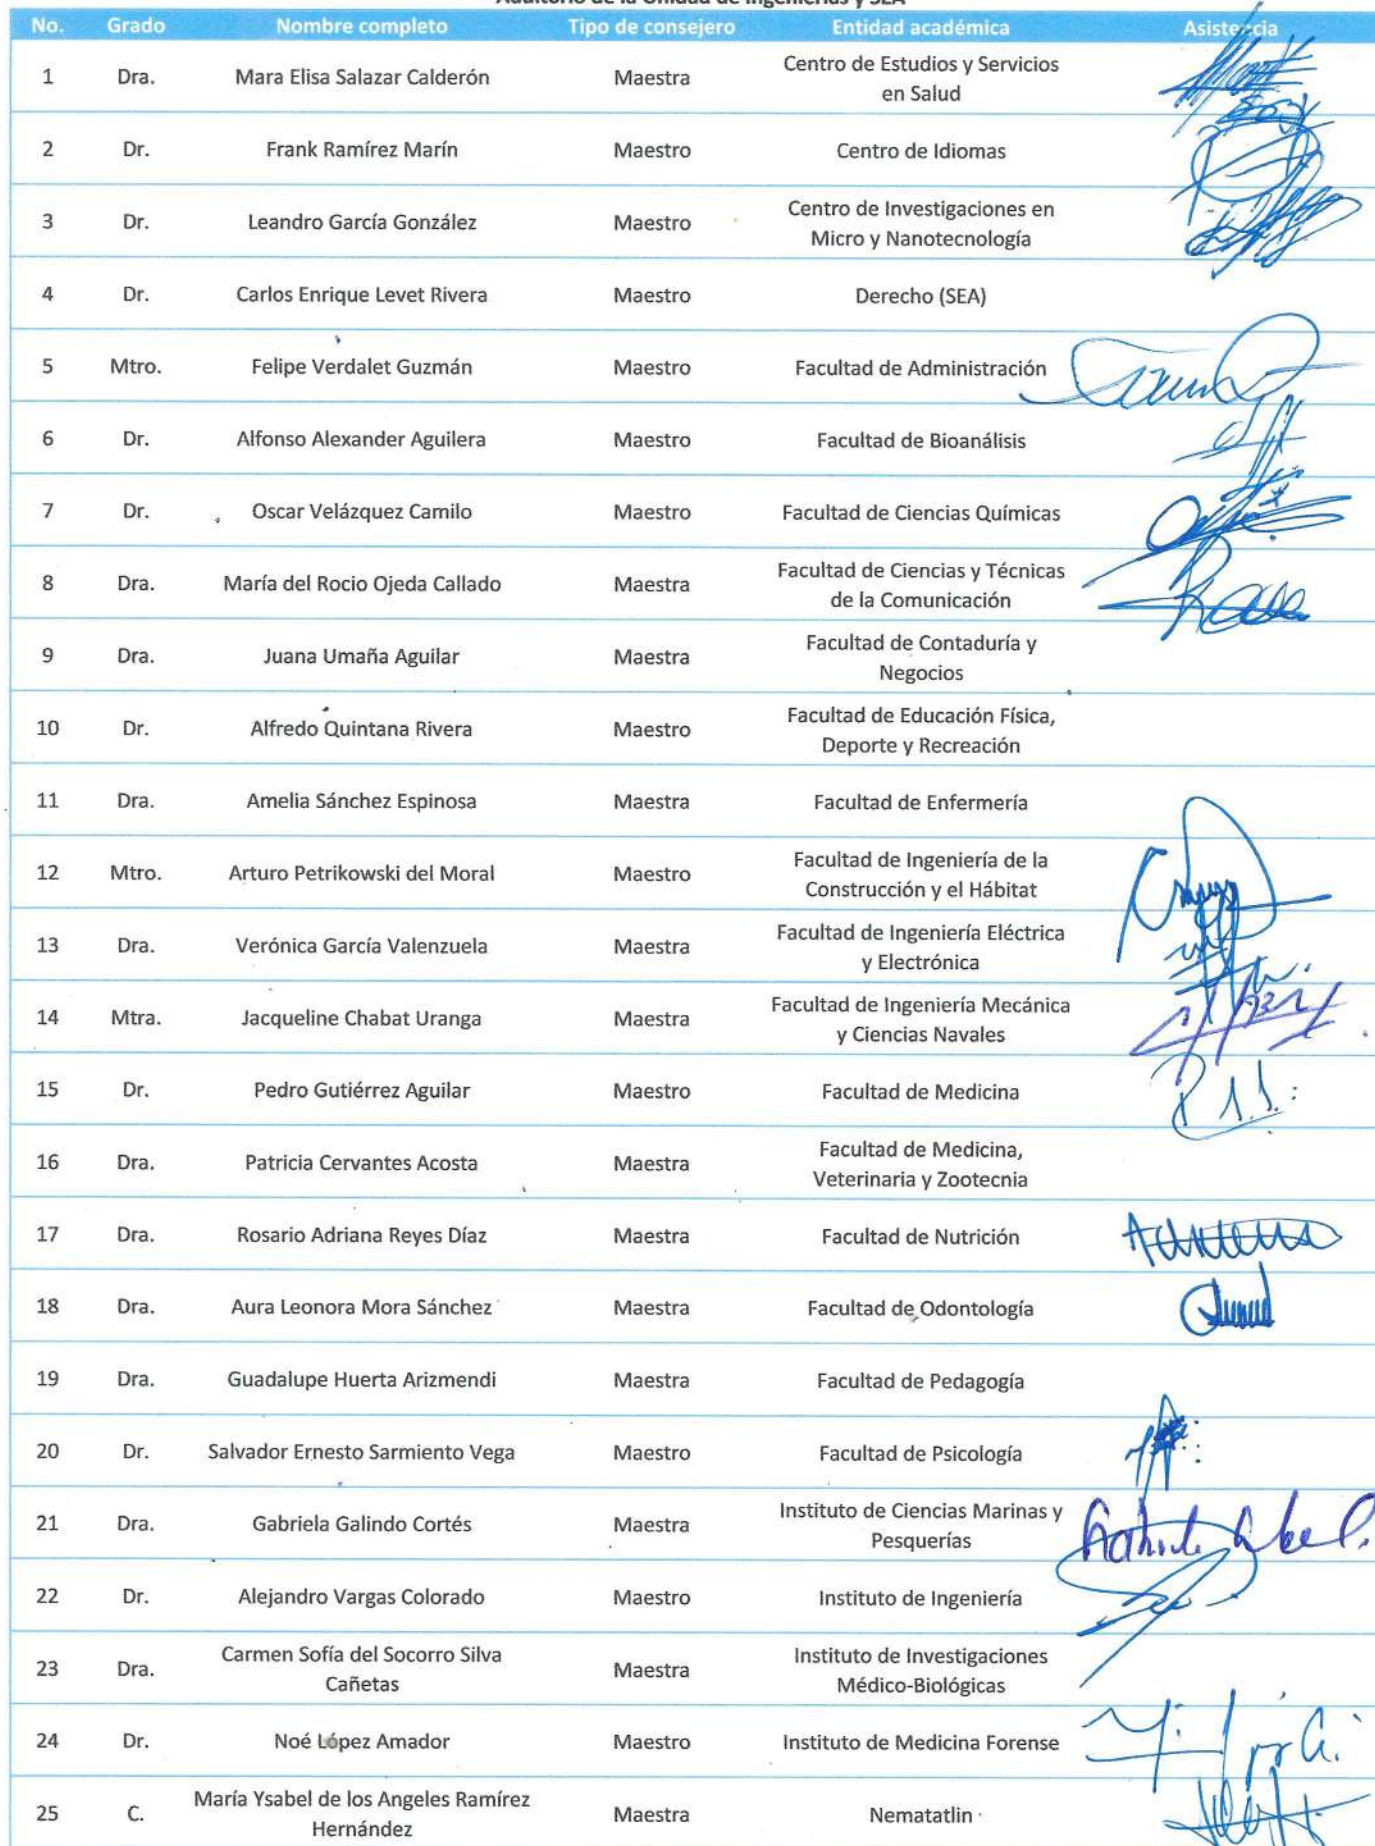 Auditorio de la Unidad de Ingenierías y SEA
No. Grado Nombre completo Tipo de consejero Entidad académica Asistencia
1 Dra. Mara Elisa Salazar Calderón Maestra Centro de Estudios y Servicios
en Salud
2 Dr. Frank Ramírez Marín Maestro Centro de Idiomas
3 Dr. Leandro García González Maestro Centro de Investigaciones en
Micro y Nanotecnología
4 Dr. Carlos Enrique Levet Rivera Maestro Derecho (SEA)
5 Mtro. Felipe Verdalet Guzmán Maestro Facultad de Administración
6 Dr. Alfonso Alexander Aguilera Maestro Facultad de Bioanálisis
7 Dr. Oscar Velázquez Camilo Maestro Facultad de Ciencias Químicas
8 Dra. María del Rocio Ojeda Callado Maestra Facultad de Ciencias y Técnicas
de la Comunicación
9 Dra. Juana Umaña Aguilar Maestra Facultad de Contaduría y
Negocios
10 Dr. Alfredo Quintana Rivera Maestro Facultad de Educación Física,
Deporte y Recreación
11 Dra. Amelia Sánchez Espinosa Maestra Facultad de Enfermería
12 Mtro. Arturo Petrikowski del Moral Maestro Facultad de Ingeniería de la
Construcción y el Hábitat
13 Dra. Verónica García Valenzuela Maestra Facultad de Ingeniería Eléctrica
y Electrónica
14 Mtra. Jacqueline Chabat Uranga Maestra Facultad de Ingeniería Mecánica
y Ciencias Navales
15 Dr. Pedro Gutiérrez Aguilar Maestro Facultad de Medicina
16 Dra. Patricia Cervantes Acosta Maestra Facultad de Medicina,
Veterinaria y Zootecnia
17 Dra. Rosario Adriana Reyes Díaz Maestra Facultad de Nutrición
18 Dra. Aura Leonora Mora Sánchez Maestra Facultad de Odontología
19 Dra. Guadalupe Huerta Arizmendi Maestra Facultad de Pedagogía
20 Dr. Salvador Ernesto Sarmiento Vega Maestro Facultad de Psicología
21 Dra. Gabriela Galindo Cortés Maestra Instituto de Ciencias Marinas y
Pesquerías
22 Dr. Alejandro Vargas Colorado Maestro Instituto de Ingeniería
23 Dra. Carmen Sofía del Socorro Silva
Cañetas Maestra Instituto de Investigaciones
Médico-Biológicas
24 Dr. Noé López Amador Maestro Instituto de Medicina Forense
25 C. María Ysabel de los Angeles Ramírez
Hernández Maestra Nematatlin